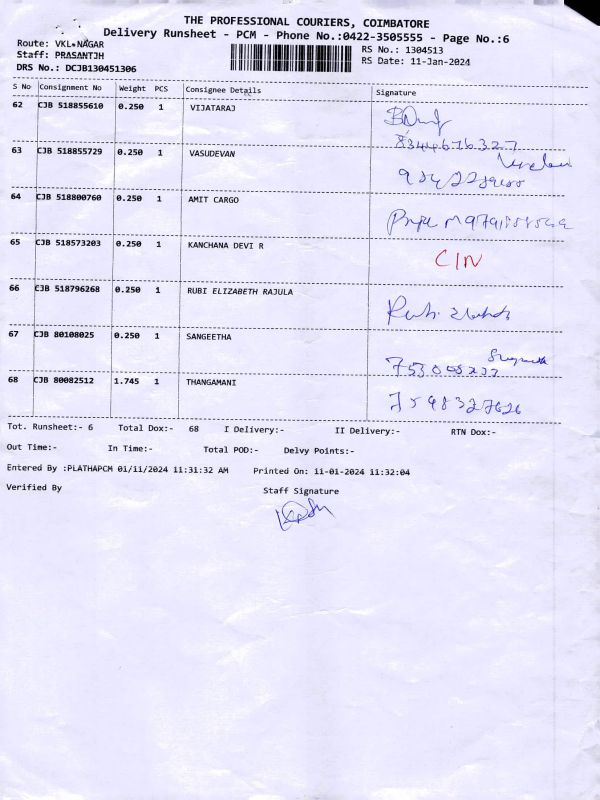 THE PROFESSIONAL COURIERS, COIMBATORE
Delivery Runsheet - PCM - Phone No.:0422-3505555 - Page No.:6
Route: VKL.NAGAR
RS No.: 1304513
Staff: PRASANTJH
RS Date: 11-Jan-2024
DRS No.: DCJB130451306
S No Consignment No Weight PCS Consignee Details Signature
62 CJB 518855610 0.250 1 VIJATARAJ
8344676327
63 CJB 518855729 0.250 1 VASUDEVAN
64 CJB 518800760 0.250 1 AMIT CARGO
65 CJB 518573203 0.250 1 KANCHANA DEVI R CIN
66 CJB 518796268 0.250 1 RUBI ELIZABETH RAJULA
67 CJB 80108025 0.250 1 SANGEETHA
68 CJB 80082512 1.745 1 THANGAMANI 7598327626
Tot. Runsheet:- 6 Total Dox:- 68 I Delivery:- II Delivery:- RTN Dox:-
Out Time:- In Time:- Total POD:- Delvy Points:-
Entered By :PLATHAPCM 01/11/2024 11:31:32 AM Printed On: 11-01-2024 11:32:04
Verified By Staff Signature